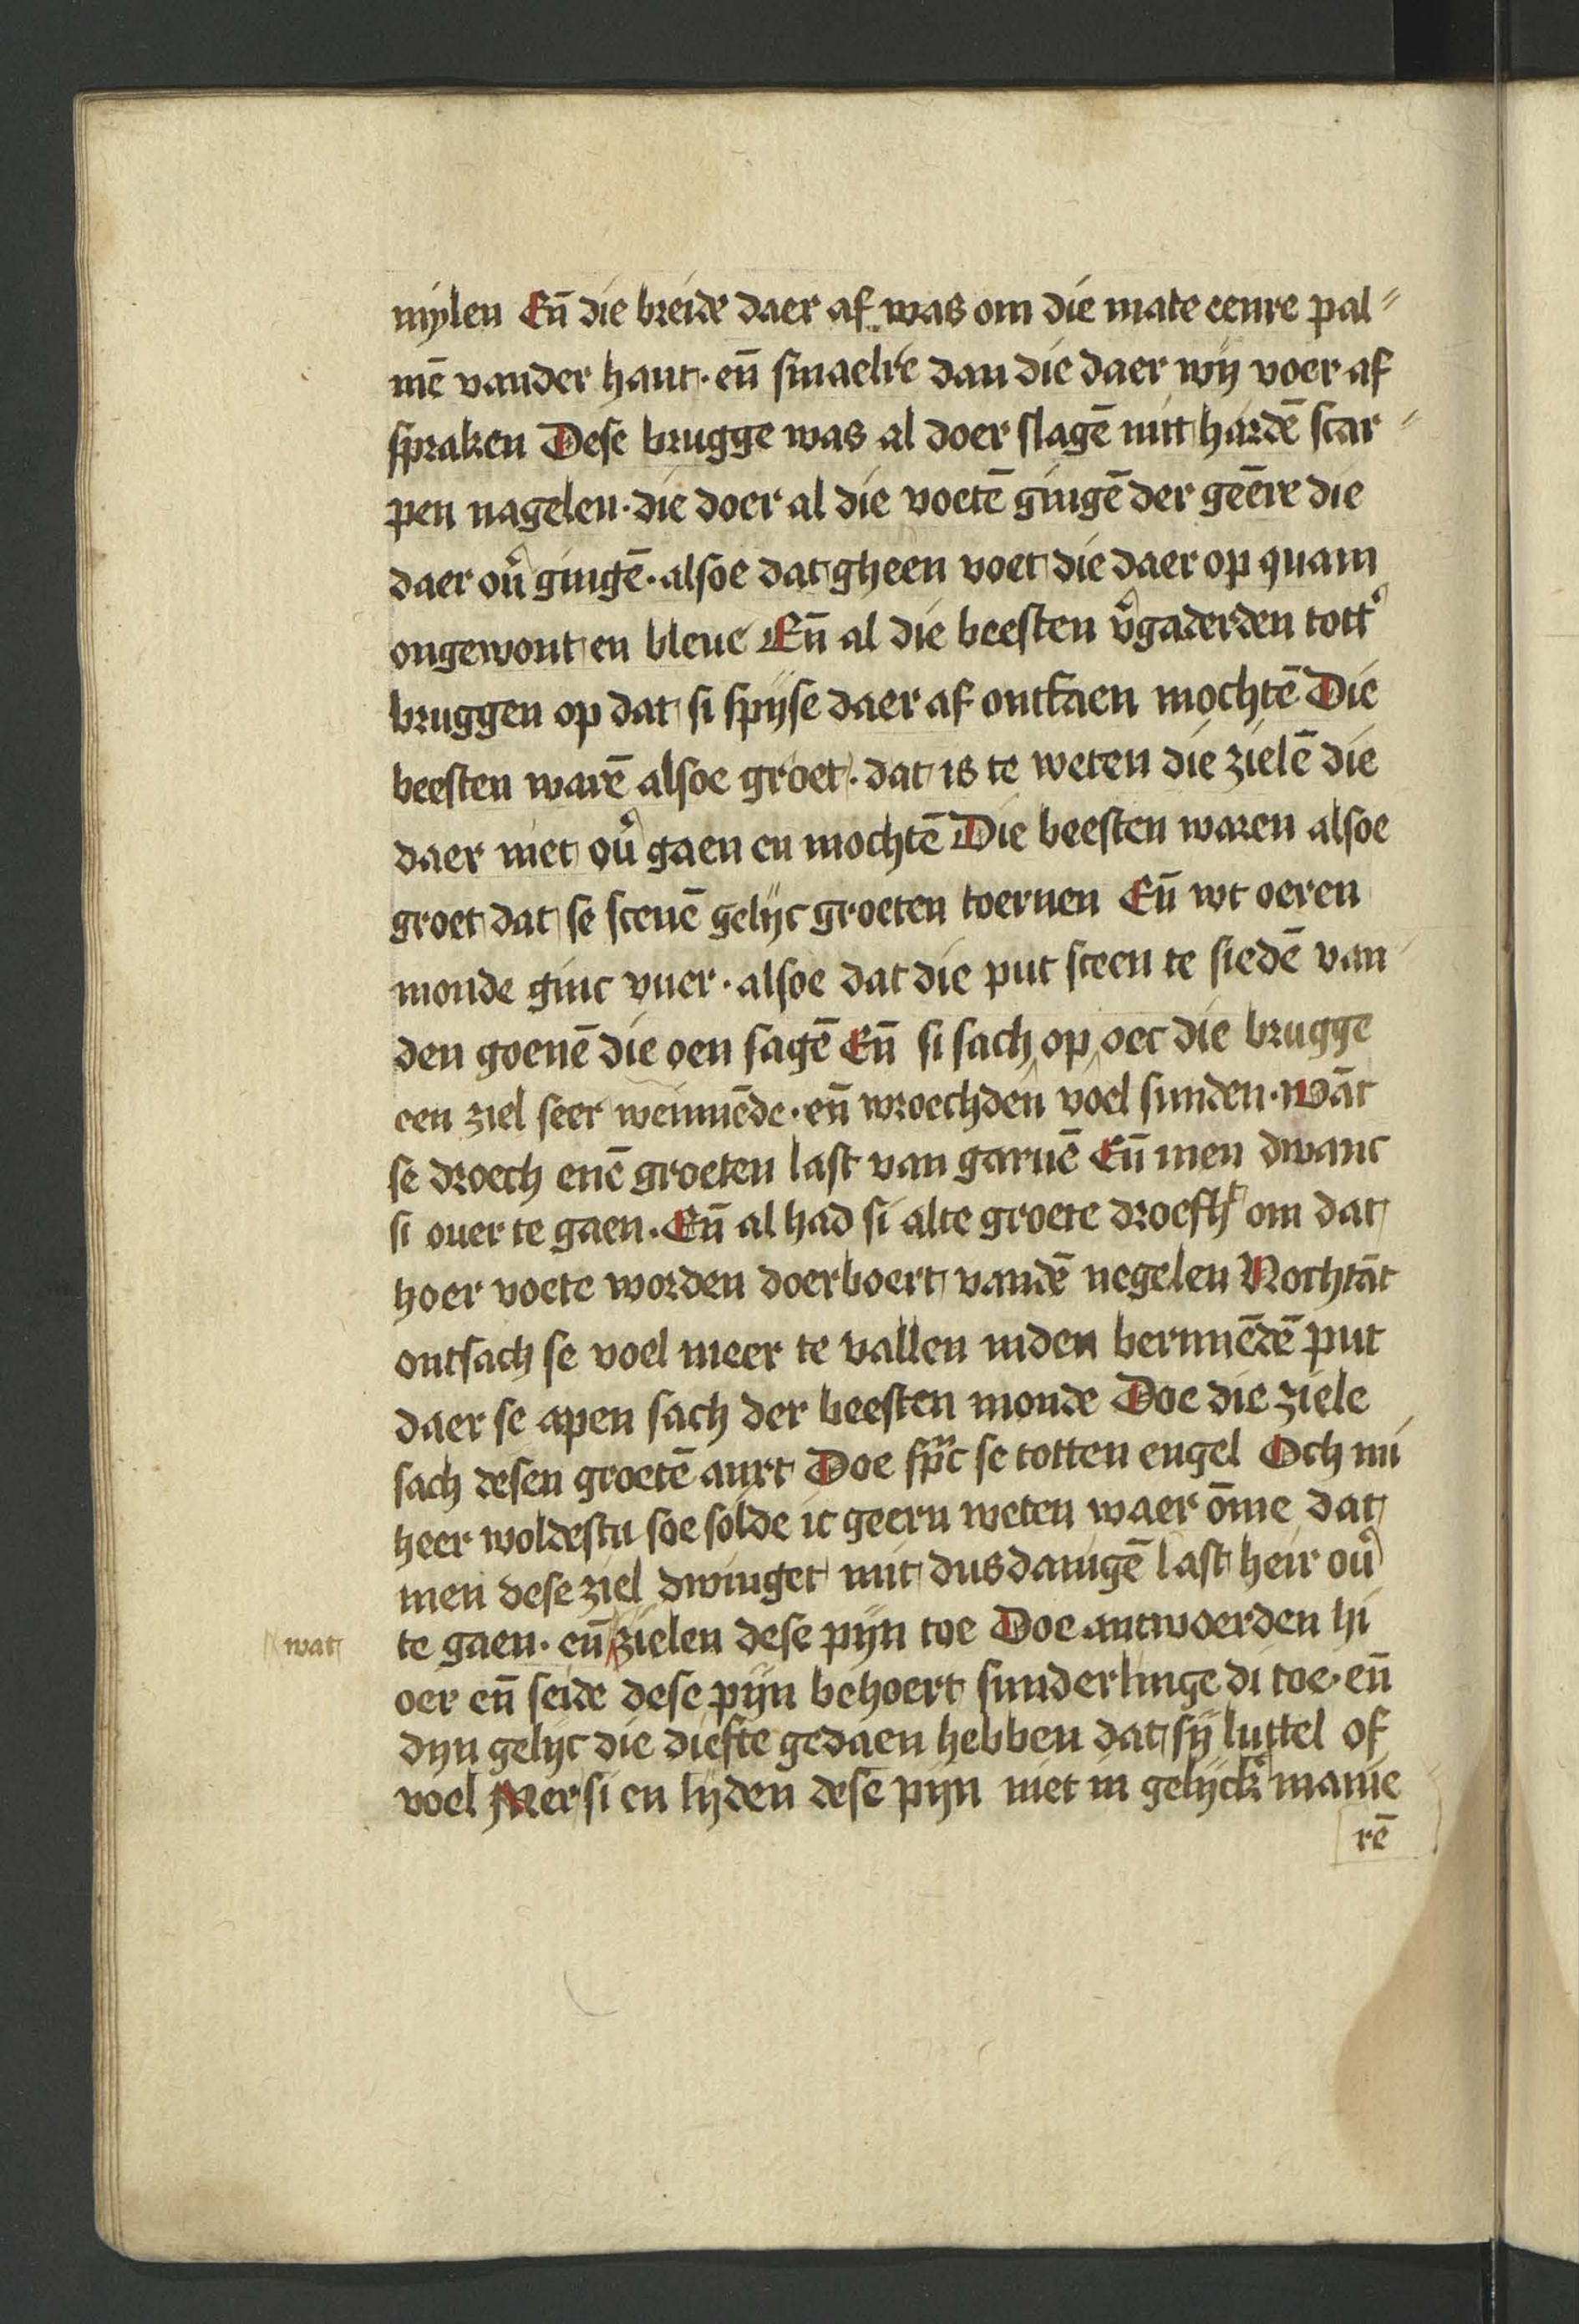 mylen Eñ die breide daer af was om die mate eenre pal⸗
mē vander hant · eñ smaelre dan die daer wij voer af
spraken Dese brugge was al doer slagē mit hardē scar⸗
pen nagelen · die doer al die voetē gingē der geēre die
daer ou̓ gingē · alsoe dat gheen voet die daer op quam
ongewont en bleue Eñ al die beesten v̓gaderden tott̓
bruggen op dat si spijse daer af ontfaen mochtē Die
beesten warē alsoe groet · dat is te weten die zielē die
daer niet ou̓ gaen en mochtē Die beesten waren alsoe
groet dat se scenē gelijc groeten toernen Eñ wt oeren
monde ginc vuer · alsoe dat die put sceen te siedē van
den goenē die oen sagē Eñ si sach op oec die brugge
een ziel seer weinnēde · eñ wroechden voel sunden · Wāt
se droech enē groeten last van garuē Eñ men dwanc
si ouer te gaen · Eñ al had si alte groete droefht om dat
hoer voete worden doerboert vandē negelen Nochtāt
ontsach se voel meer te vallen inden bernnēdē put
daer se apen sach der beesten monde Doe die ziele
sach desen groetē anxt Doe spͣc se totten engel Och mi
heer woldestu soe solde ic geern weten waer ōme dat
men dese ziel dwinget mit dusdanigē last heir ou̓
te gaen · eñ zielen dese pijn toe Doe antwoerden hi
wat
oer eñ seide dese pijn behoert sunderlinge di toe · eñ
dyn gelijc die diefte gedaen hebben dat sij luttel of
voel Mer si en lijden dese pijn niet in gelijck̓ manie
rē